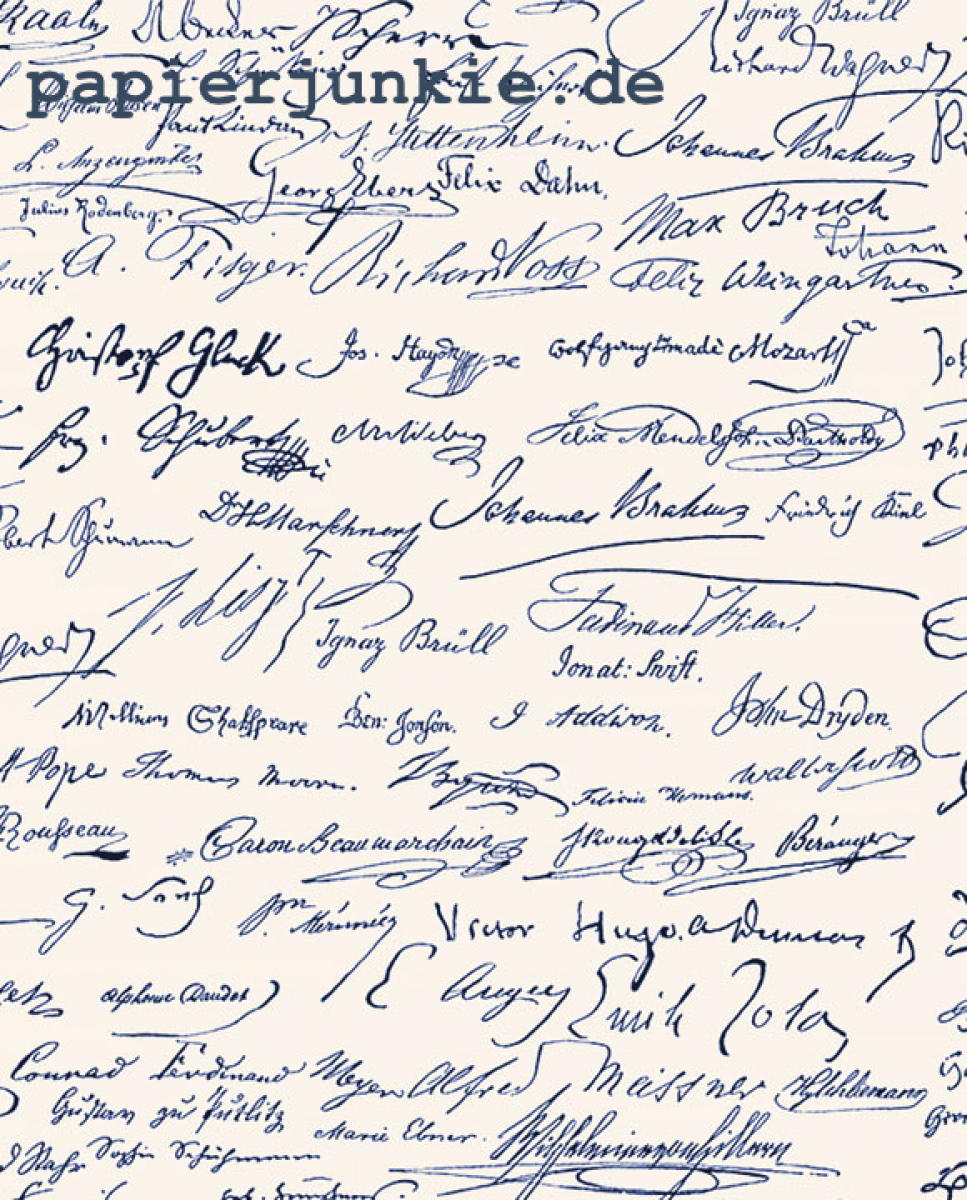 Ignaz Brüll
Richard Wagner
papierjunkie.de
Paul Lindau
J. Stettenheim. Johannes Brahms
L. Anzengruber
Georg Ebers Felix Dahn.
Julius Rodenberg.
Max Bruch
Johann
A. Fitger. Richard Voss Felix Weingartner.
Christoph Gluck Jos. Haydn Wolfgang Amadè Mozart
Frz. Schubert CMvWeber Felix Mendelssohn Bartholdy
bert Schumann D HMarschner Johannes Brahms Friedrich Kiel
F. Liszt Ferdinand Hiller.
gner Ignaz Brüll
Jonat: Swift.
William Shakspeare Ben: Jonson. J Addison. John Dryden.
A Pope Thomas Moore. Walter Scott
Felicia Hemans.
Rousseau Caron Beaumarchais Béranger
G. Sand
Pr. Mérimée Victor Hugo. A Dumas
Alphonse Daudet Augier Emile Zola
Conrad Ferdinand Meyer Alfred Meissner HSchliemann
Gustav zu Putlitz Marie Ebner. Wilhelmine von Hillern
d Stahr Sophie